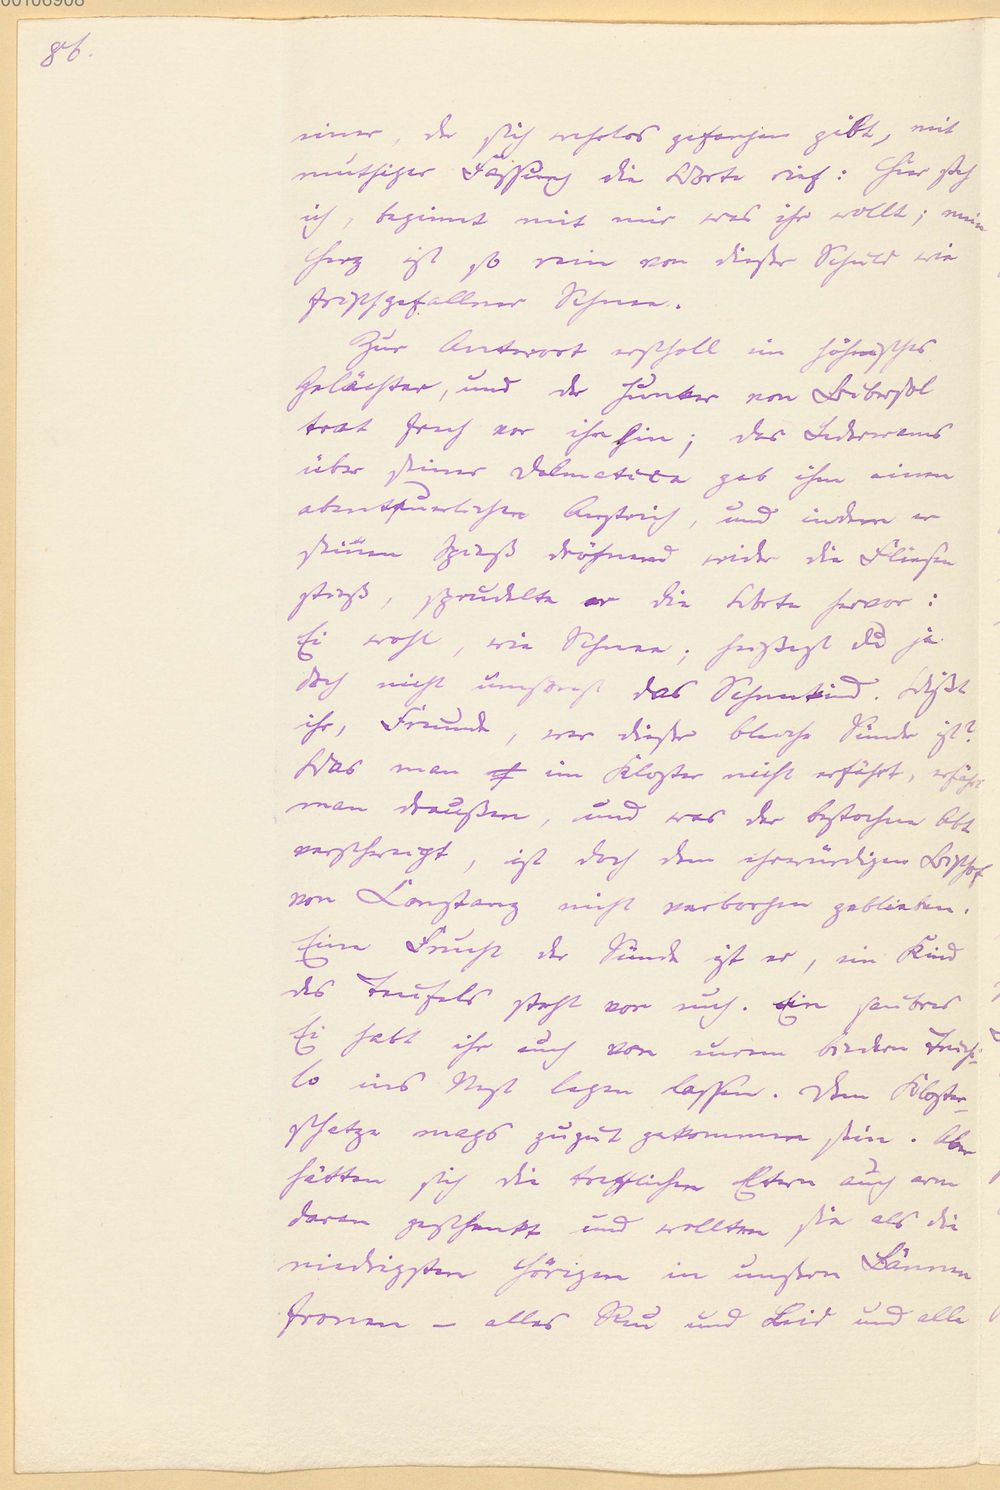 86.
einer, der sich wehrlos gefangen gibt, mit
muthiger Fassung die Worte rief: Hier steh
ich, beginnt mit mir was ihr wollt; mein
Herz ist so rein von dieser Schuld wie
frischgefallner Schnee.
Zur Antwort erscholl ein höhnisches
Gelächter, und der Hunker von Bibersol
trat frech vor ihn hin; das Lederwams
über seiner Dalmatica gab ihm einen
abenteuerlichen Anstrich, und indem er
seinen Spieß dröhnend wider die Fliesen
stieß, sprudelte er die Worte hervor:
Ei wohl, wie Schnee; heißest du ja
doch nicht umsonst das Schneekind. Wißt
ihr, Freunde, wer dieser bleiche Sünder ist?
Was man im Kloster nicht erfährt, erfährt
man draußen, und was der bestochne Abt
verschweigt, ist doch dem ehrwürdigen Bischof
von Constanz nicht verborgen geblieben.
Eine Frucht der Sünde ist er, ein Kind
des Teufels steht vor euch. Ein saubres
Ei habt ihr euch von eurem biedern
lo ins Nest legen lassen. Dem Kloster-
schatze mags zugut gekommen sein. Aber
hätten sich die trefflichen Eltern auch arm
daran geschenkt und wollten sie als die
niedrigsten Hörigen in unsern Bännen
fronen – alles Reu und Leid und alle